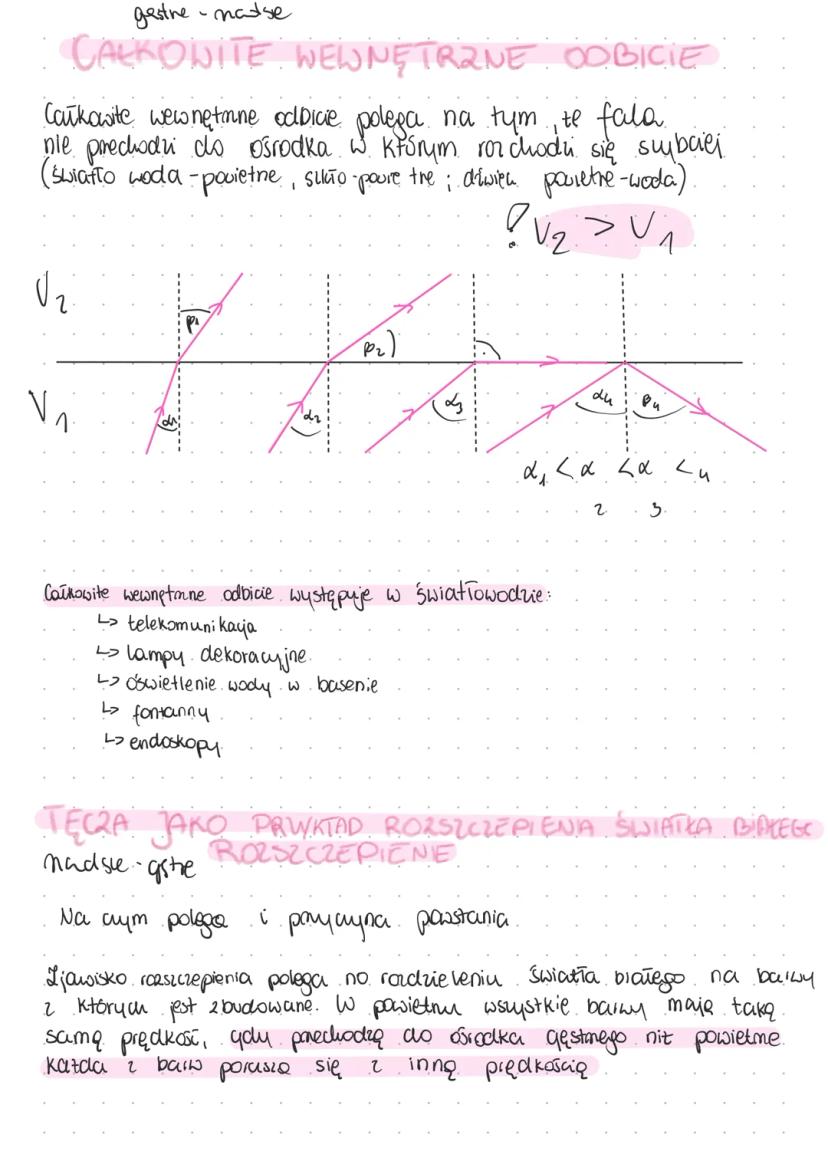 gęstsze - rzadsze
CAŁKOWITE WEWNĘTRZNE ODBICIE
Całkowite wewnętrzne odbicie polega na tym, że fala
nie przechodzi do ośrodka w którym rozchodzi się szybciej
(światło woda - powietrze, szkło - powietrze ; dźwięk powietrze - woda)
! V2 > V1
V2
β1
β2
V1
α1
α2
α3
α4
β4
α1 < α2 < α3 < 4
Całkowite wewnętrzne odbicie występuje w światłowodzie:
↳ telekomunikacja
↳ lampy dekoracyjne
↳ oświetlenie wody w basenie
↳ fontanny
↳ endoskopy
TĘCZA JAKO PRZYKŁAD ROZSZCZEPIENIA ŚWIATŁA BIAŁEGO
ROZSZCZEPIENIE
rzadsze - gęstsze
Na czym polega i przyczyna powstania
Zjawisko rozszczepienia polega na rozdzieleniu światła białego na barwy
z których jest zbudowane. W powietrzu wszystkie barwy mają taką
samą prędkość, gdy przechodzą do ośrodka gęstszego niż powietrze
każda z barw porusza się z inną prędkością